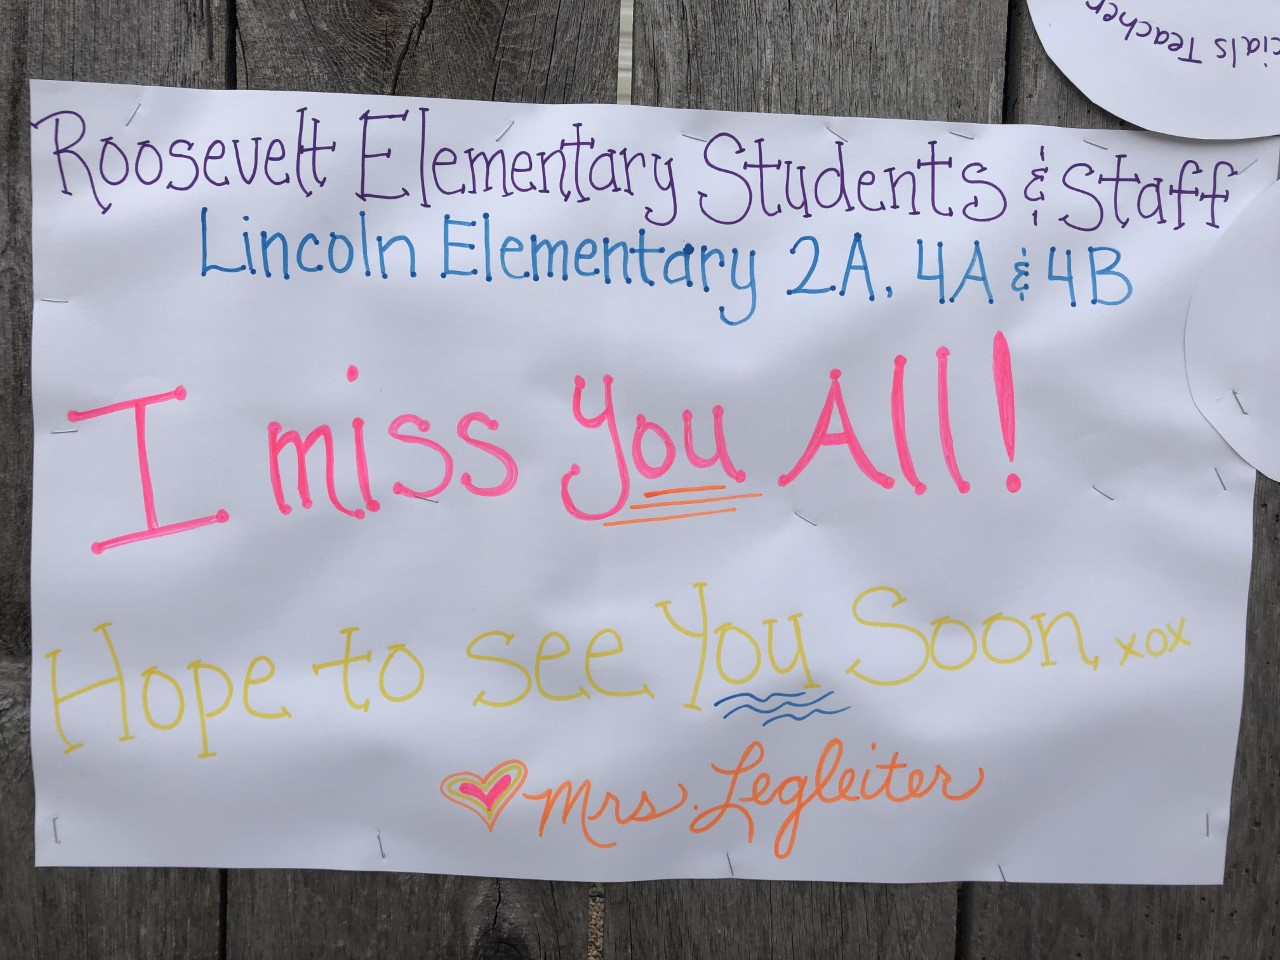 cials Teacher
Roosevelt Elementary Students & Staff
Lincoln Elementary 2A, 4A & 4B
I miss You All!
Hope to see You Soon, xox
Mrs. Legleiter